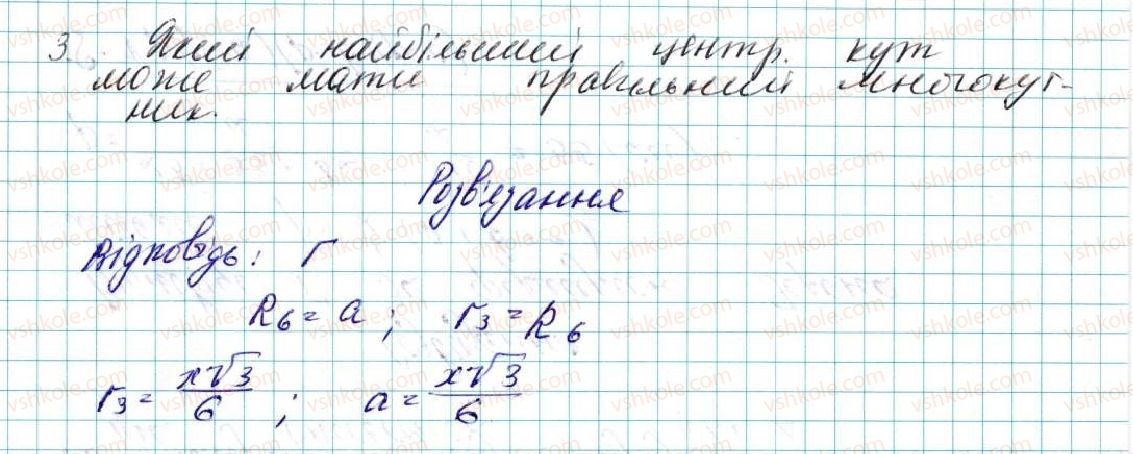 3. Який найбільший центр. кут
може мати правильний многокут-
ник.
Розв'язання
Відповідь: Г
R₆ = a ; r₃ = R₆
r₃ = x√3/6 ; a = x√3/6